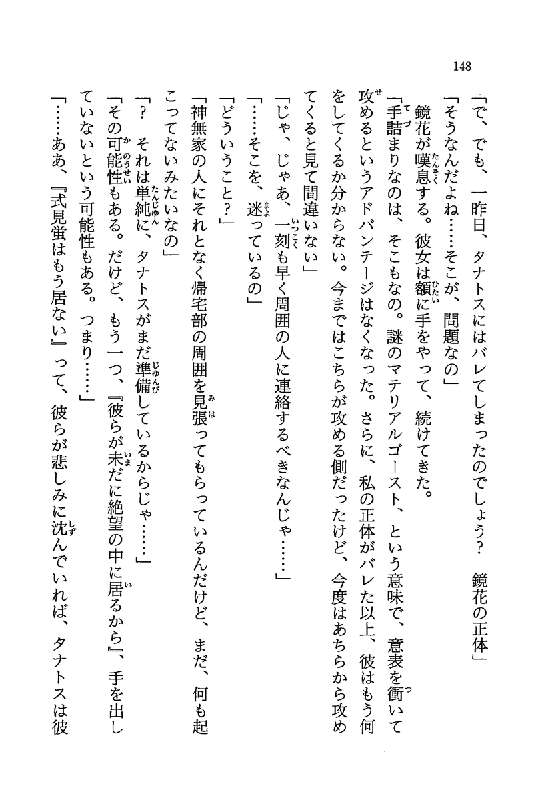 148
「で、でも、一昨日、タナトスにはバレてしまったのでしょう？　鏡花の正体」
「そうなんだよね……そこが、問題なの」
　鏡花が嘆息する。彼女は額に手をやって、続けてきた。
「手詰まりなのは、そこもなの。謎のマテリアルゴースト、という意味で、意表を衝いて
攻めるというアドバンテージはなくなった。さらに、私の正体がバレた以上、彼はもう何
をしてくるか分からない。今まではこちらが攻める側だったけど、今度はあちらから攻め
てくると見て間違いない」
「じゃ、じゃあ、一刻も早く周囲の人に連絡するべきなんじゃ……」
「……そこを、迷っているの」
「どういうこと？」
「神無家の人にそれとなく帰宅部の周囲を見張ってもらっているんだけど、まだ、何も起
こってないみたいなの」
「？　それは単純に、タナトスがまだ準備しているからじゃ……」
「その可能性もある。だけど、もう一つ、『彼らが未だに絶望の中に居るから』、手を出し
ていないという可能性もある。つまり……」
「……ああ、『式見蛍はもう居ない』って、彼らが悲しみに沈んでいれば、タナトスは彼